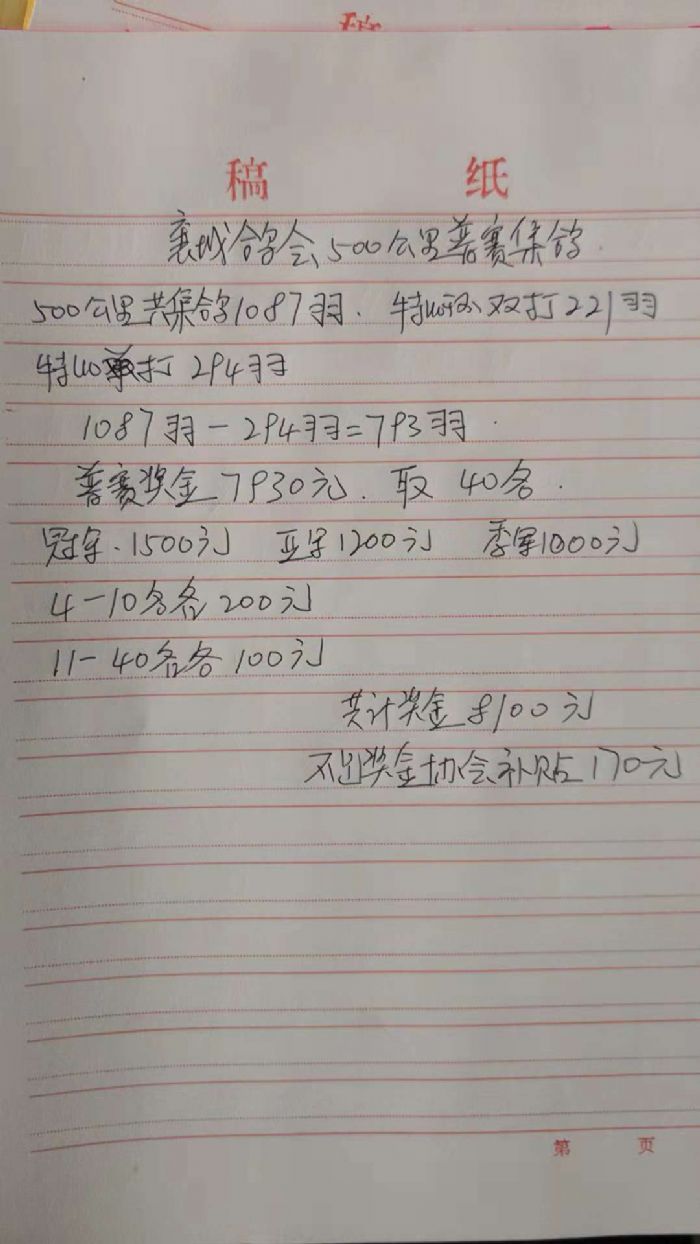 稿 纸
襄城鸽会500公里普赛集鸽.
500公里共集鸽1087羽. 特比环双打221羽
特比单打 294羽
1087羽-294羽=793羽.
普赛奖金7930元. 取 40名.
冠军.1500元 亚军1200元 季军1000元
4-10名各 200元
11-40名各 100元
共计奖金 8100元
不足奖金协会补贴170元
第 页